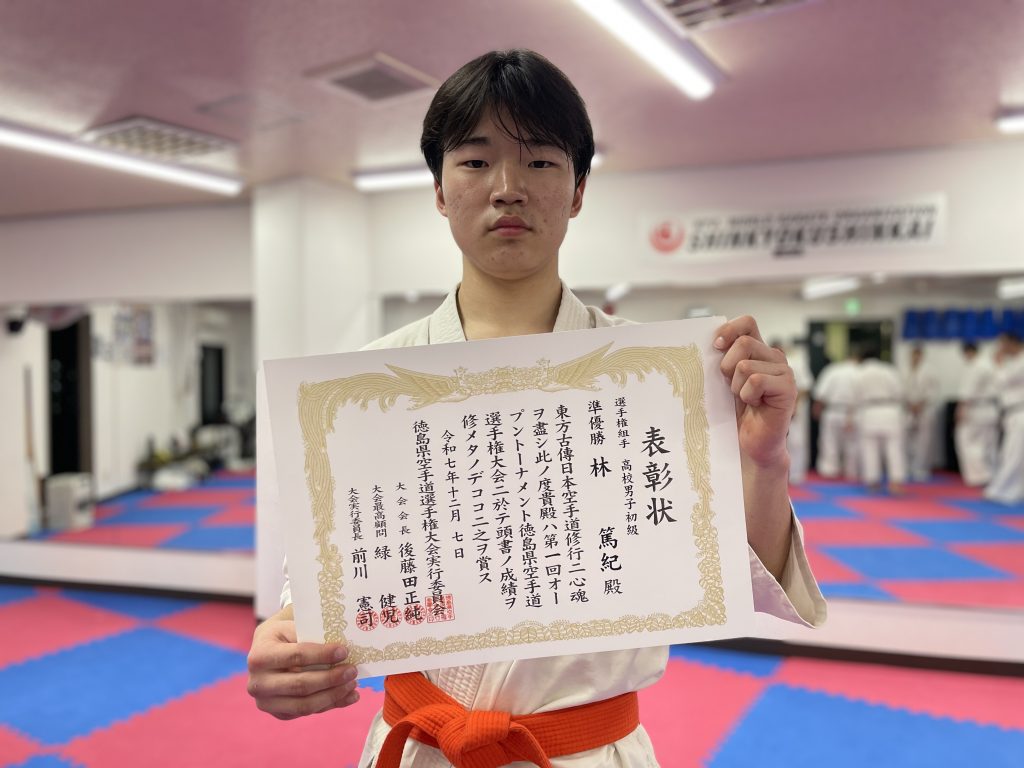 WORLD KARATE ORGANIZATION
SHINKYOKUSHINKAI
表彰状
選手権組手 高校男子初級
準優勝 林 篤紀 殿
東方古傳日本空手道修行ニ心魂
ヲ盡シ此ノ度貴殿ハ第一回オー
プントーナメント徳島県空手道
選手権大会ニ於テ頭書ノ成績ヲ
修メタノデココニ之ヲ賞ス
令和七年十二月 七 日
徳島県空手道選手権大会実行委員会
大 会 会 長 後藤田正純
大会最高顧問 緑 健児
大会実行委員長 前川 憲司